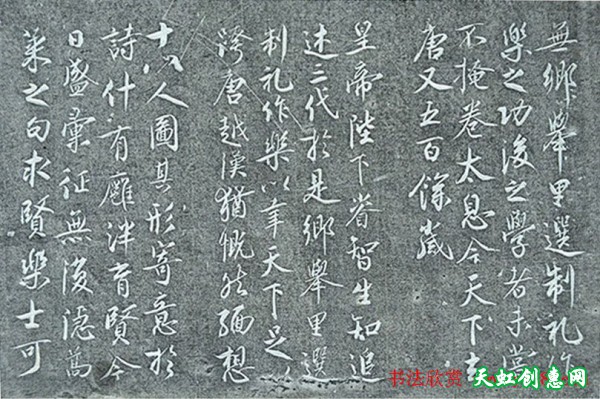 無鄉舉里選制礼作
樂之功後之學者未嘗
不掩卷太息今天下去
唐又五百餘歲
皇帝陛下睿智生知追
述三代於是鄉舉里選
制礼作樂以幸天下足以
跨唐越漢猶慨然緬想
十八人圖其形寄意於
詩什有廱泮育賢今
日盛彙征無復隱蒿
萊之句求賢樂士可
书法欣赏
天虹创惠网